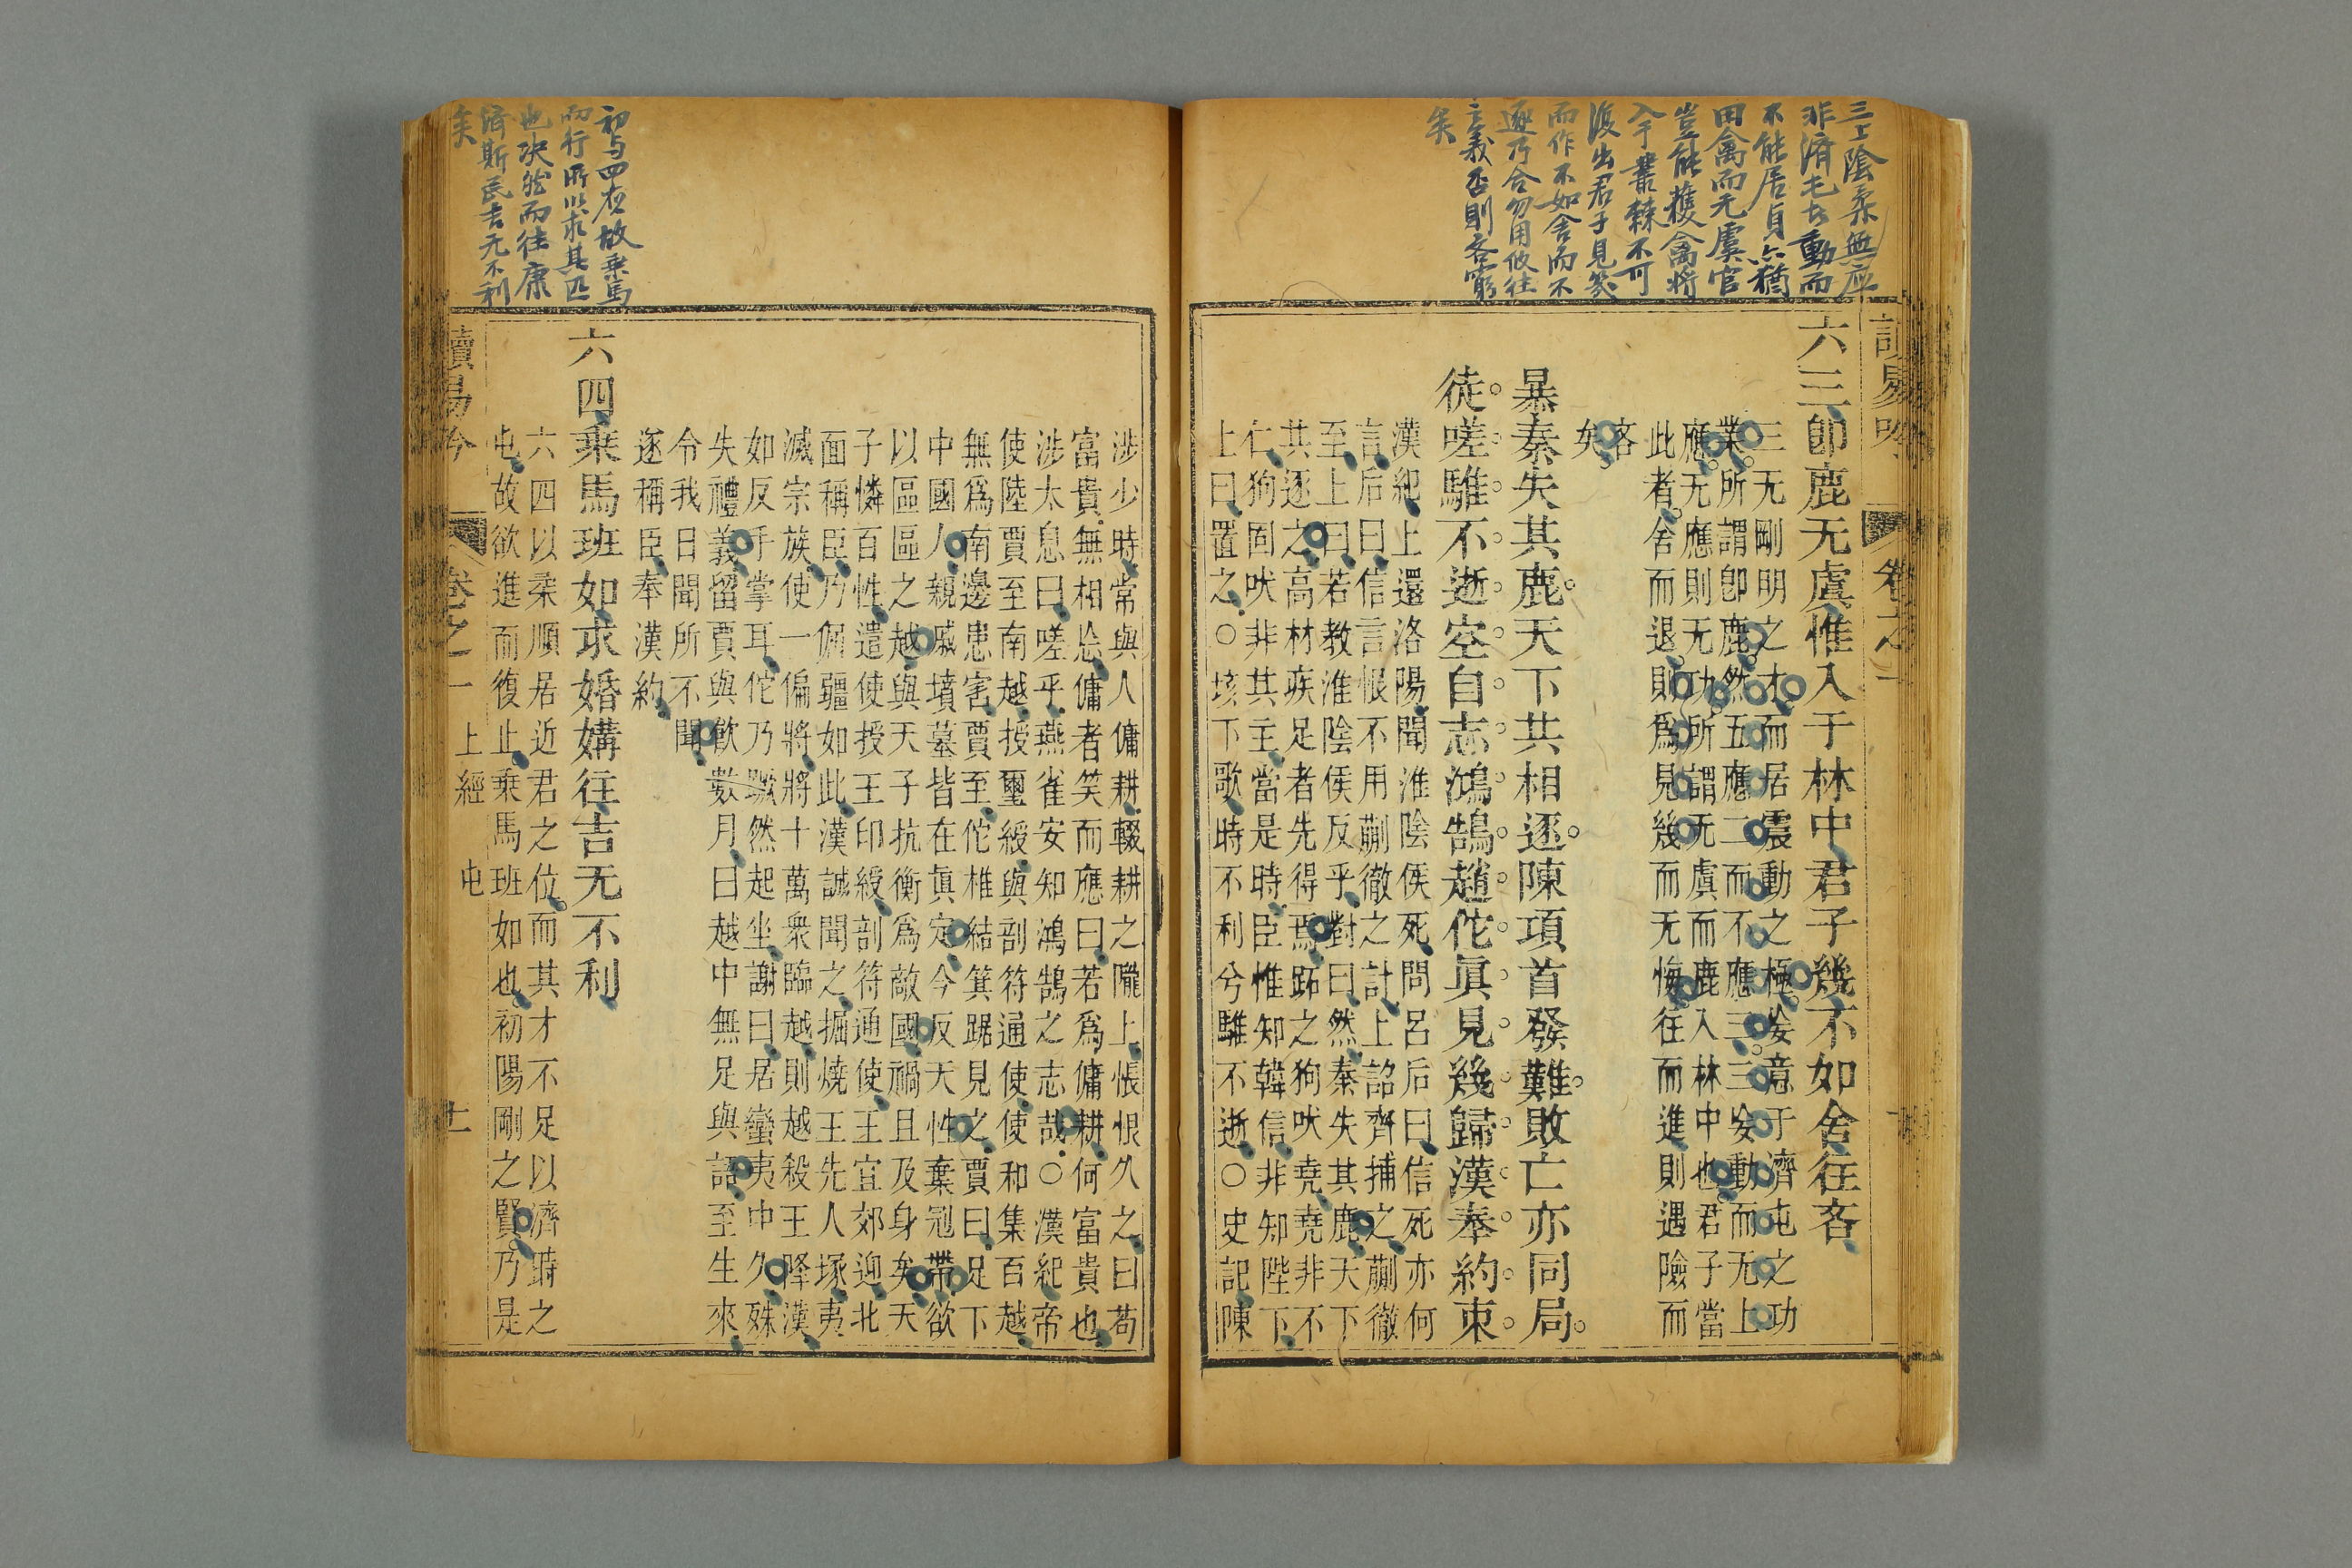 三上陰柔無應
非濟屯才動而
不能居貞亦猶
田禽而无虞官
豈能獲禽將
入于叢棘不可
復出君子見幾
而作不如舍而不
逐乃合勿用攸往
之義否則吝窮
矣
讀易吟 卷之一
六三卽鹿无虞惟入于林中君子幾不如舍往吝
三无剛明之才而居震動之極妄意于濟屯之功
業所謂卽鹿然五應二而不應三三妄動而无上
應无應則无功所謂无虞而鹿入林中也君子當
此者舍而退則爲見幾而无悔往而進則遇險而
吝
矣
暴秦失其鹿天下共相逐陳項首發難敗亡亦同局
徒嗟騅不逝空自志鴻鵠趙佗眞見幾歸漢奉約束
漢紀上還洛陽聞淮陰侯死問呂后曰信死亦何
言后曰信言恨不用蒯徹之計上詔齊捕之蒯徹
至上曰若教淮陰侯反乎對曰然秦失其鹿天下
共逐之高材疾足者先得焉跖之狗吠堯堯非不
仁狗固吠非其主當是時臣惟知韓信非知陛下
上曰置之○垓下歌時不利兮騅不逝○史記陳
涉少時常與人傭耕輟耕之隴上悵恨久之曰苟
富貴無相忘傭者笑而應曰若爲傭耕何富貴也
涉太息曰嗟乎燕雀安知鴻鵠之志哉○漢紀帝
使陸賈至南越授璽綬與剖符通使使和集百越
無爲南邊患害賈至佗椎結箕踞見之賈曰足下
中國人親戚墳墓皆在眞定今反天性棄冠帶欲
以區區之越與天子抗衡爲敵國禍且及身矣天
子憐百姓遣使授王印綬剖符通使王宜郊迎北
面稱臣乃倔彊如此漢誠聞之掘燒王先人塚夷
滅宗族使一偏將將十萬衆臨越則越殺王降漢
如反手掌耳佗乃蹶然起坐謝曰居蠻夷中久殊
失禮義留賈與飮數月曰越中無足與語至生來
令我日聞所不聞
逐稱臣奉漢約
初与四應故乘馬
而行所以求其匹
也決然而往康
濟斯民吉无不利
矣
六四乘馬班如求婚媾往吉无不利
六四以柔順居近君之位而其才不足以濟時之
屯故欲進而復止乘馬班如也初陽剛之賢乃是
讀易吟 卷之一 上經 屯 十一